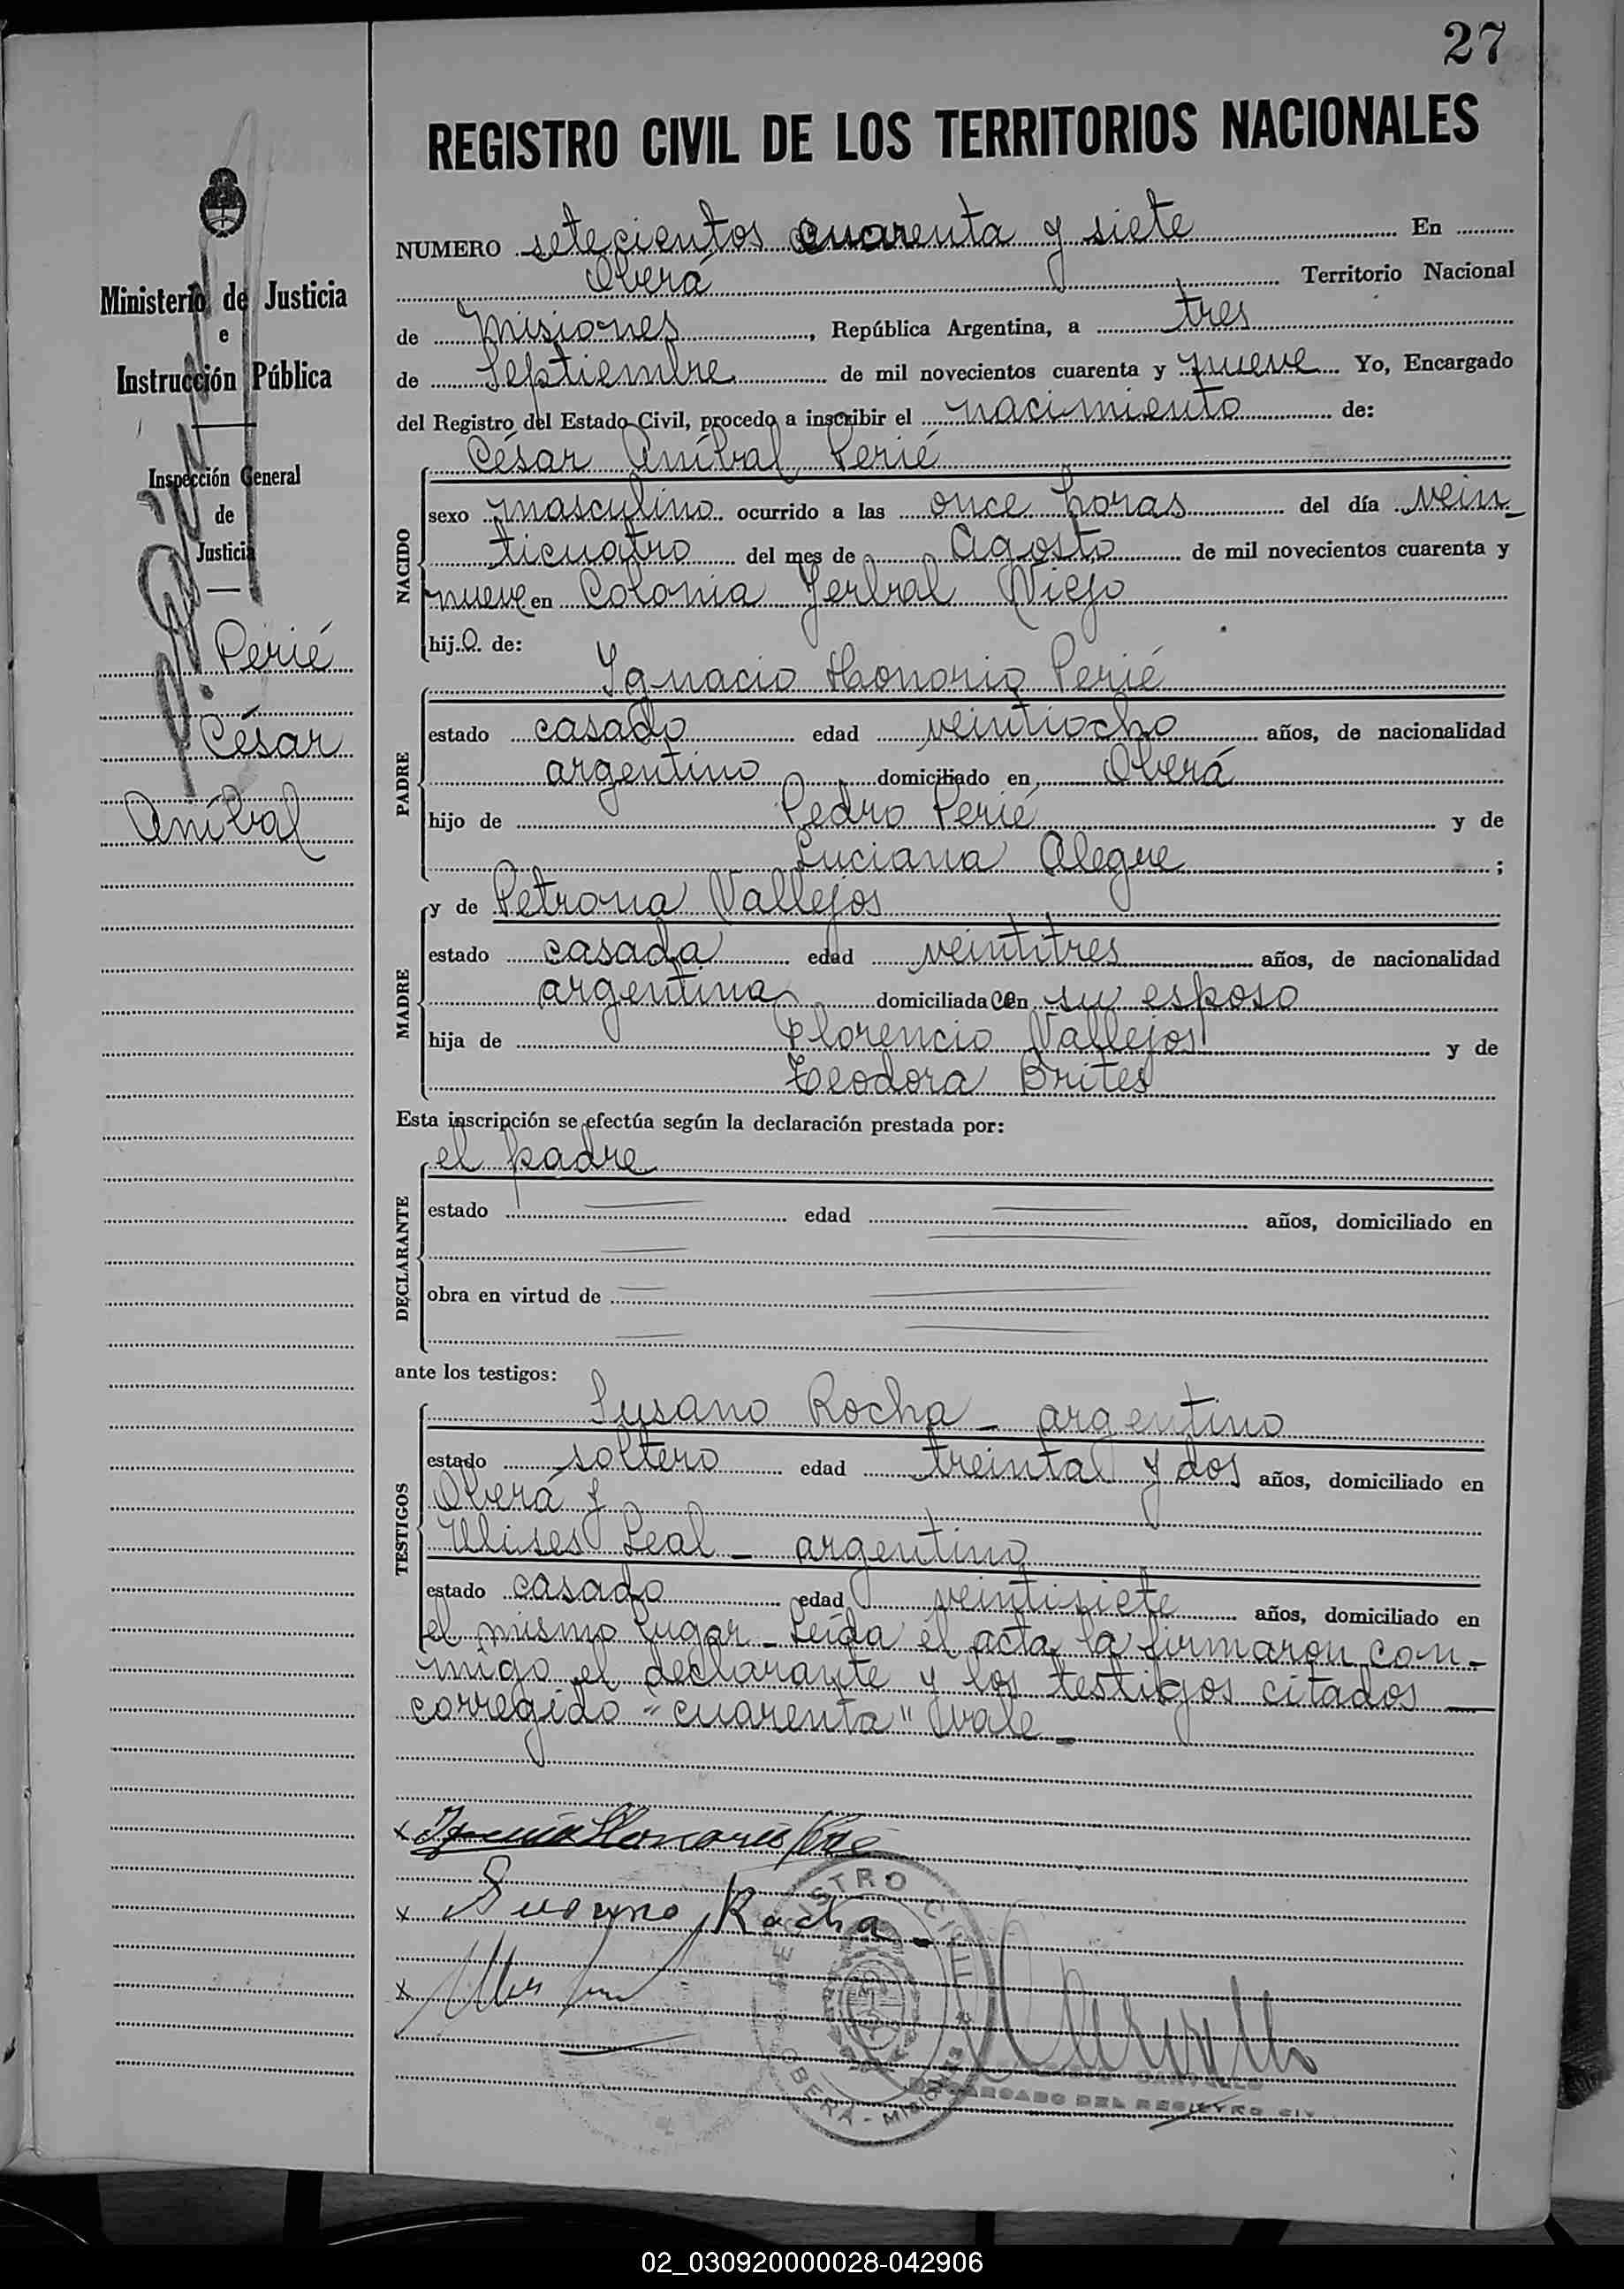 27
REGISTRO CIVIL DE LOS TERRITORIOS NACIONALES
Ministerio de Justicia
e
Instrucción Pública
Inspección General
de
Justicia
Perié
César
Aníbal
NUMERO setecientos cuarenta y siete En
Oberá Territorio Nacional
de Misiones, República Argentina, a tres
de Septiembre de mil novecientos cuarenta y nueve Yo, Encargado
del Registro del Estado Civil, procedo a inscribir el nacimiento de:
César Aníbal Perié
NACIDO
sexo masculino ocurrido a las once horas del día vein-
ticuatro del mes de Agosto de mil novecientos cuarenta y
nueve en Colonia Yerbal Viejo
hijo de:
Ignacio Honorio Perié
PADRE
estado casado edad veintiocho años, de nacionalidad
argentino domiciliado en Oberá
hijo de Pedro Perié y de
Luciana Alegre ;
y de Petrona Vallejos
MADRE
estado casada edad veintitres años, de nacionalidad
argentina domiciliada con su esposo
hija de Florencio Vallejos y de
Teodora Brites
Esta inscripción se efectúa según la declaración prestada por:
el padre
DECLARANTE
estado edad años, domiciliado en
obra en virtud de
ante los testigos:
Susano Rocha - argentino
TESTIGOS
estado soltero edad treinta y dos años, domiciliado en
Oberá y
Ulises Leal - argentino
estado casado edad veintisiete años, domiciliado en
el mismo lugar - Leída el acta la firmaron con-
migo el declarante y los testigos citados —
corregido "cuarenta" vale -
x Ignacio Honorio Perié
x Susano Rocha -
x
REGISTRO CIVIL
OBERA - MISIONES
ENCARGADO DEL REGISTRO CIV
02_030920000028-042906